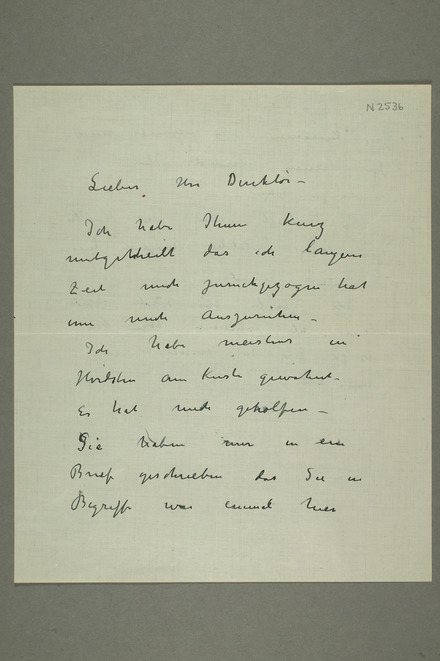 N 2536
Lieber Herr Direktör –
Ich habe Ihnen kurz
mitgetheilt das ich längere
Zeit mich zurückgezogen hat
um mich auszuruhen –
Ich habe meistens in
am Küste gewohnt –
Es hat mich geholfen –
Sie haben mir in ein
Brief geschrieben das Sie in
Begriff war einmal hier